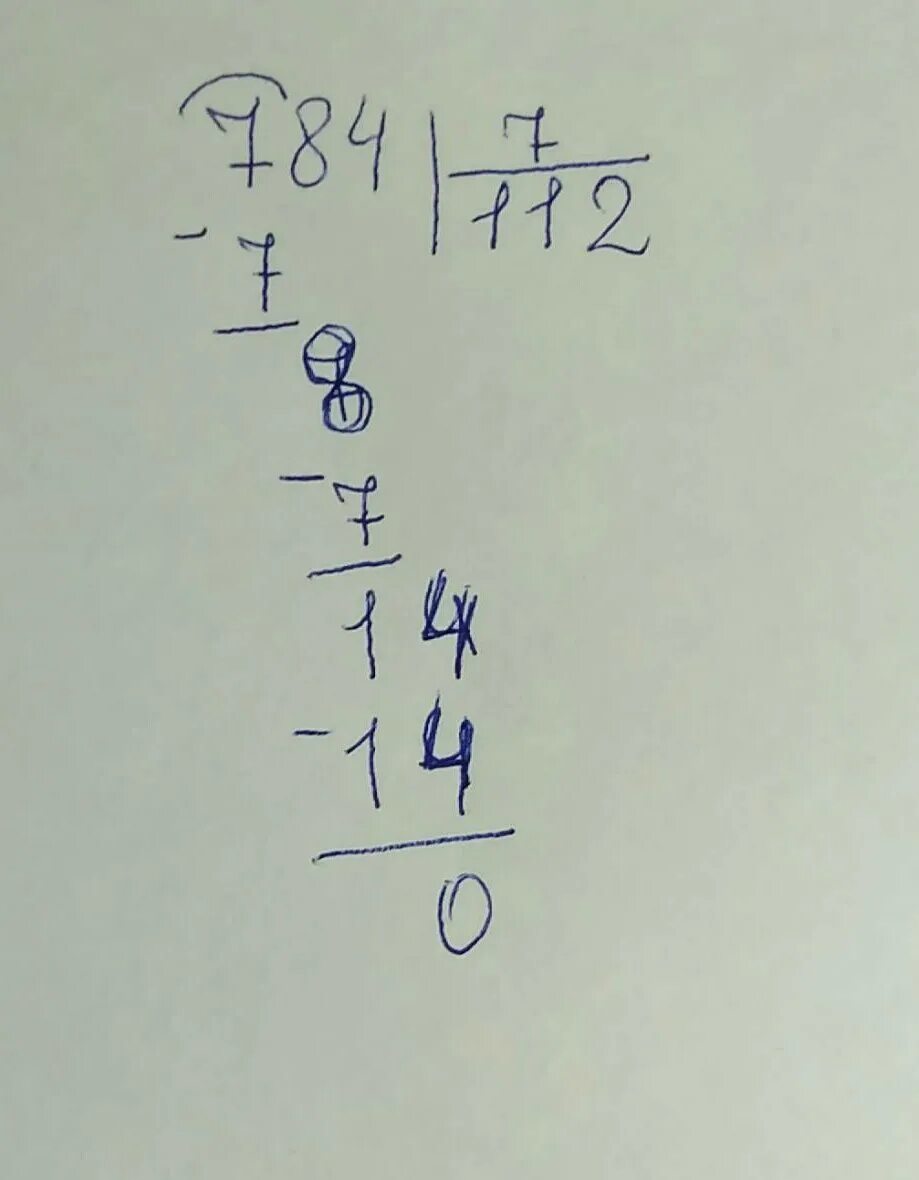 784 | 7
112
- 7
8
- 7
14
- 14
0